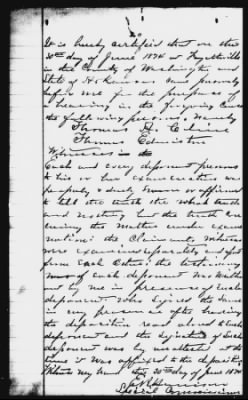 It is hereby certified that on the
30th day of June 1874 at Fayetteville
in the County of Washington and
State of Arkansas came personally
before me for the purpose of
a hearing in the foregoing cause
the following persons, namely
Thomas
Thomas Edmiston
Witnesses
Each and every deponent previous
to his or her examination was
properly & duly sworn or affirmed
to tell the truth the whole truth
and nothing but the truth con
cerning the matter under exami
nation: the Claimants, witness
were examined separately and apart
from each other: the testimony
of each deponent was written
out by me in presence of such
deponent who signed the same
in my presence after having
the deposition read aloud to such
deponent and the signature of such
deponent was by
time it was affixed to the deposition
Witness my hand this 30th day of June 1874
Special Commissioner